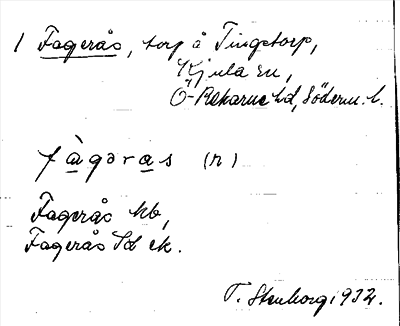 1 Fagerås, torp å Tingstorp,
Kjula sn,
Ö-Rekarne hd, Söderm. l.
fàgəras (n)
Fagerås kb,
Fagerås Jd ek.
T. Stenborg 1932.